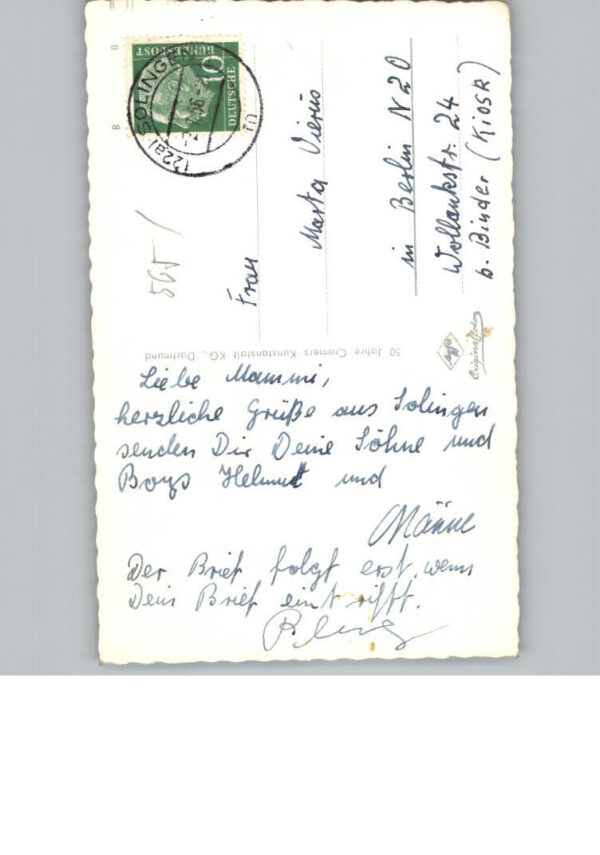 Liebe Mammi,
herzliche Grüße aus Solingen
senden Dir Deine Söhne und
Boys Helmut und
Männe
Der Brief folgt erst, wenn
Dein Brief eintrifft.
Frau
Marta Vierus
in Berlin N 20
Wollankstr. 24
b. Binder (Kiosk)
50 Jahre Cramers Kunstanstalt KG., Dortmund
Originalfoto
DEUTSCHE
BUNDESPOST
10
(22a) SOLINGEN